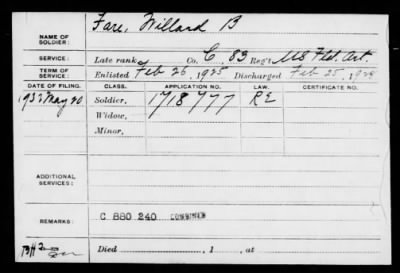 NAME OF SOLDIER: Fare, Willard B
SERVICE: Late rank Co. C, 83 Reg't US Fld. Art.
TERM OF SERVICE: Enlisted Feb 26, 1925 Discharged Feb 25, 1928
DATE OF FILING. CLASS. APPLICATION NO. LAW. CERTIFICATE NO.
1932 May 20 Soldier, 1718777 RE
Widow,
Minor,
ADDITIONAL SERVICES:
REMARKS: C 880 240 COMBINED
Died , 1 , at